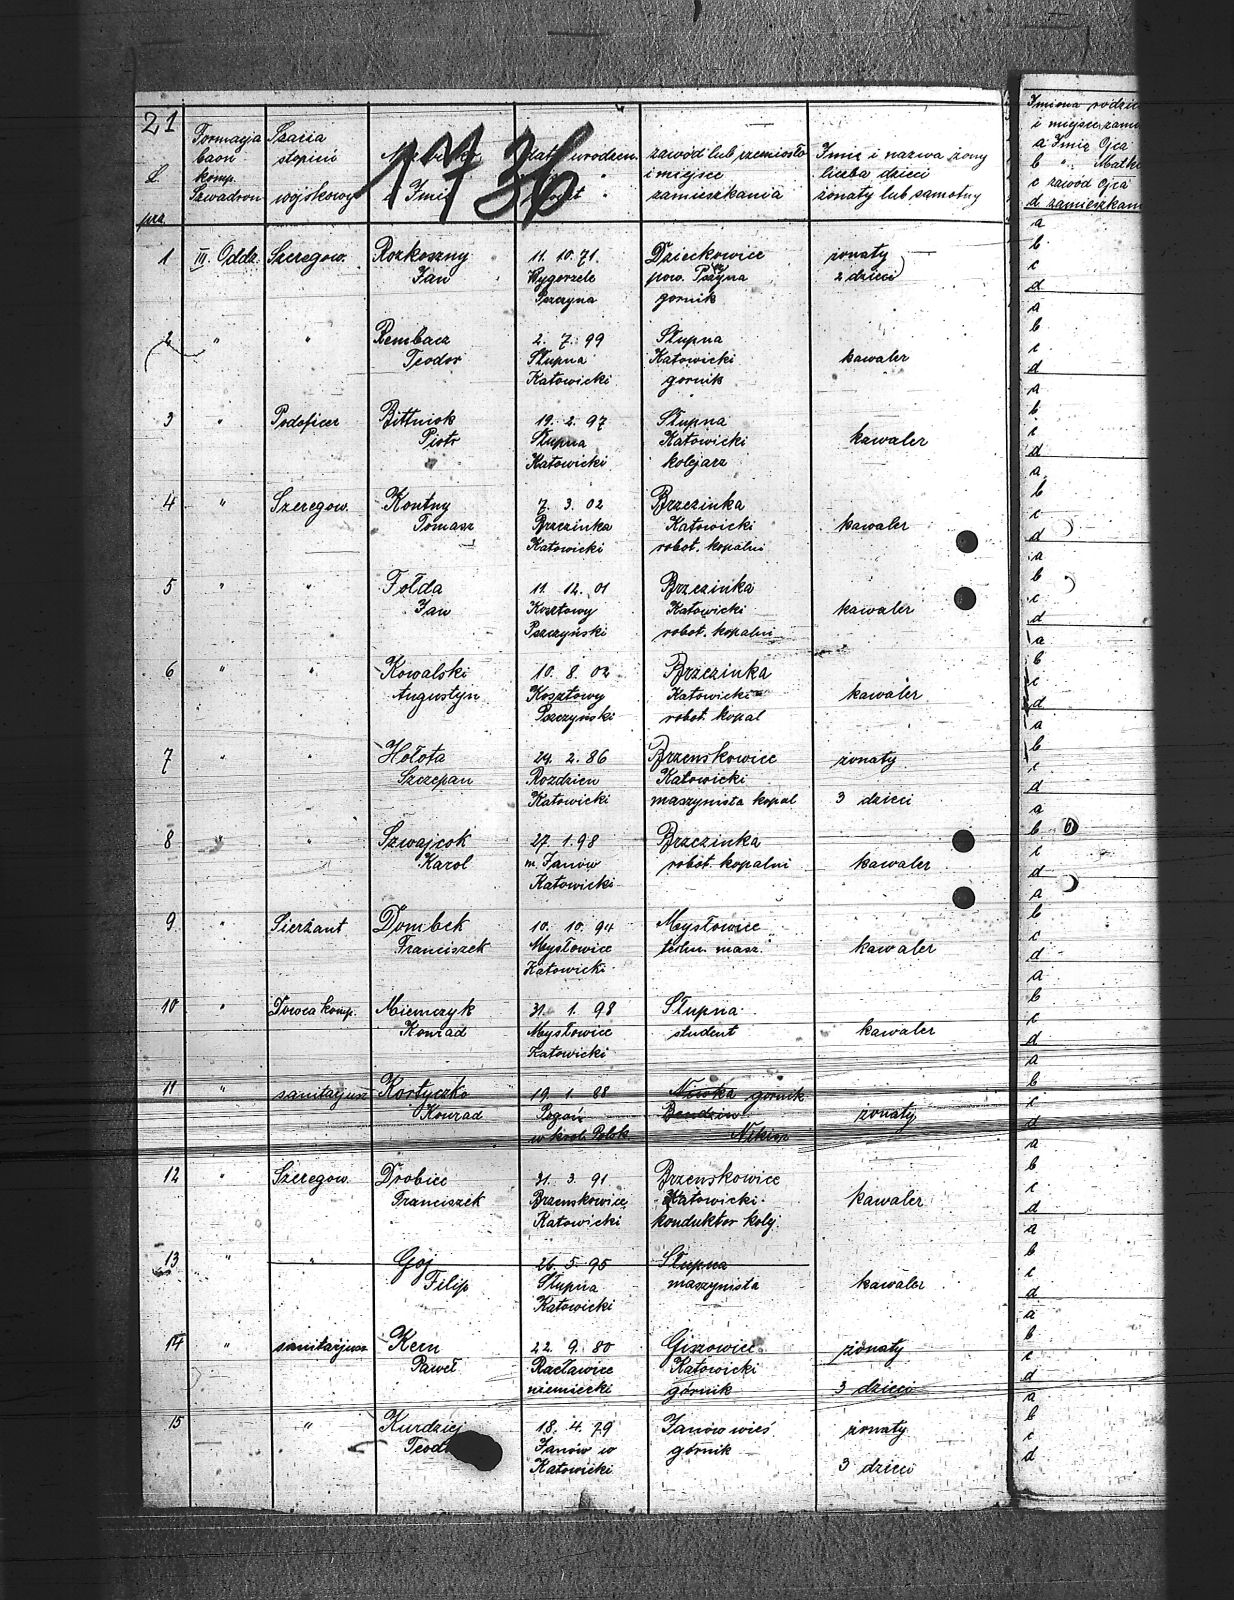 21
1736
Formacja Szarża
baon stopień Nazwisko Data urodzen. zawód lub rzemiosło Imię i nazwa żony
komp. i miejsce liczba dzieci
Szwadron wojskowy i Imię zamieszkania żonaty lub samotny
1 III. Oddz. Szeregow. Rozkoszny 11. 10. 71. Dzieckowice żonaty
Jan Wygorzele pow. Pszczyna 2 dzieci
Pszczyna gornik
2 " " Rembacz 2. 7. 99 Słupna
Teodor Słupna Katowicki kawaler
Katowicki gornik
3 " Podoficer Bittniok 19. 2. 97 Słupna
Piotr Słupna Katowicki kawaler
Katowicki kolejarz
4 " Szeregow. Kontny 7. 3. 02 Brzezinka
Tomasz Brzezinka Katowicki kawaler
Katowicki robot. kopalni
5 " " Fołda 11. 12. 01 Brzezinka
Jan Kosztowy Katowicki kawaler
Pszczyński robot. kopalni
6 " " Kowalski 10. 8. 02 Brzezinka
Augustyn Kosztowy Katowicki kawaler
Pszczyński robot. kopal
7 " " Hołota 24. 2. 86 Brzenskowice żonaty
Szczepan Rozdzien Katowicki
Katowicki maszynista kopal 3 dzieci
8 " " Szwajcok 27. 1. 98 Brzezinka
Karol m. Janów robot. kopalni kawaler
Katowicki
9 " Sierżant Dombek 10. 10. 94 Mysłowice
Franciszek Mysłowice techn. masz. kawaler
Katowicki
10 " Dowca komp. Niemczyk 31. 1. 98 Słupna
Konrad Mysłowice student kawaler
Katowicki
11 " sanitarjusz Kostyczko 19. 1. 88 Niwka gornik
Konrad Pogoń Bendzin żonaty
w król. Polsk.
12 " Szeregow. Drobiec 31. 3. 91 Brzenskowice
Franciszek Brzenskowice Katowicki kawaler
Katowicki konduktor kolj.
13 " " Goj 26. 5. 95 Słupna
Filip Słupna maszynista kawaler
Katowicki
14 " sanitarjusz Kern 22. 9. 80 Giszowiec żonaty
Paweł Racławice Katowicki
niemiecki górnik 3 dzieci
15 " Kurdziej 18. 4. 79 Janów wieś żonaty
Janów w górnik
Katowicki 3 dzieci
Imiona
i miejsce
a Imię Ojca
b " Matki
c zawód Ojca
d
a
b
c
d
a
b
c
d
a
b
c
d
a
b
c
d
a
b
c
d
a
b
c
d
a
b
c
d
a
b
c
d
a
b
c
d
a
b
c
d
a
b
c
d
a
b
c
d
a
b
c
d
a
b
c
d
a
b
c
d